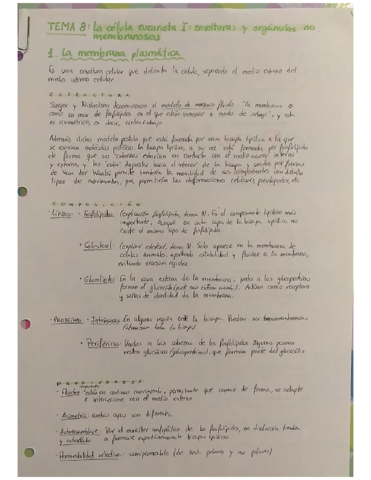 TEMA 8: La célula eucariota I: envolturas y orgánulos no
membranosos
1. La membrana plasmática
Es una envoltura celular que delimita la célula, separando el medio externo del
medio interno celular.
ESTRUCTURA
Singer y Nicholson el modelo de mosaico fluido "la membrana es
como un mar de fosfolípidos en el que están a modo de", y esta
es asimétrica, es decir,
Además dicho modelo postula que está formada por una bicapa lipídica a la que
se asocian moléculas proteicas. La bicapa lipídica, a su vez está formada por fosfolípidos
de forma que sus cabezas estarían en contacto con el medio interno
y externo, y las colas hacia el interior de la bicapa y unidas por fuerzas
de Van der Waals permite también la movilidad de sus componentes con distintos
tipos de movimientos, que permitirán las deformaciones celulares pseudópodos, etc.
COMPOSICIÓN
- Lípidos: - Fosfolípidos (explicación fosfolípidos, tema IV). Es el componente lipídico más
importante, aunque en cada capa de la bicapa lipídica no
existe el mismo tipo de fosfolípidos.
- Colesterol: (explicar colesterol, tema IV. Solo aparece en la membrana de
células animales, aportando estabilidad y fluidez a la membrana,
evitando excesiva rigidez.
- Glucolípidos: En la cara externa de la membrana, junto a las glucoproteínas
forman el glucocálix. Actúan como receptores
y señas de identidad de la membrana.
- PROTEÍNAS - Intrínsecas: En alguna región entre la bicapa. Pueden ser transmembranosas
(atraviesan toda la bicapa)
- Periféricas: Unidas a las cabezas de los fosfolípidos. Algunas poseen
restos glucídicos (glucoproteínas), que forman parte del glucocálix
PROPIEDADES
- Fluidez: están en continuo movimiento, permitiendo que cambie de forma, se adapte
e interaccione con el medio externo
- Asimetría: ambas capas son diferentes.
- Autoensamblaje: Por el carácter anfipático de los fosfolípidos, en disolución tienden
y autosellado a formarse espontáneamente bicapas lipídicas.
- Permeabilidad selectiva: semipermeable (deja unas pasar y no pasar)